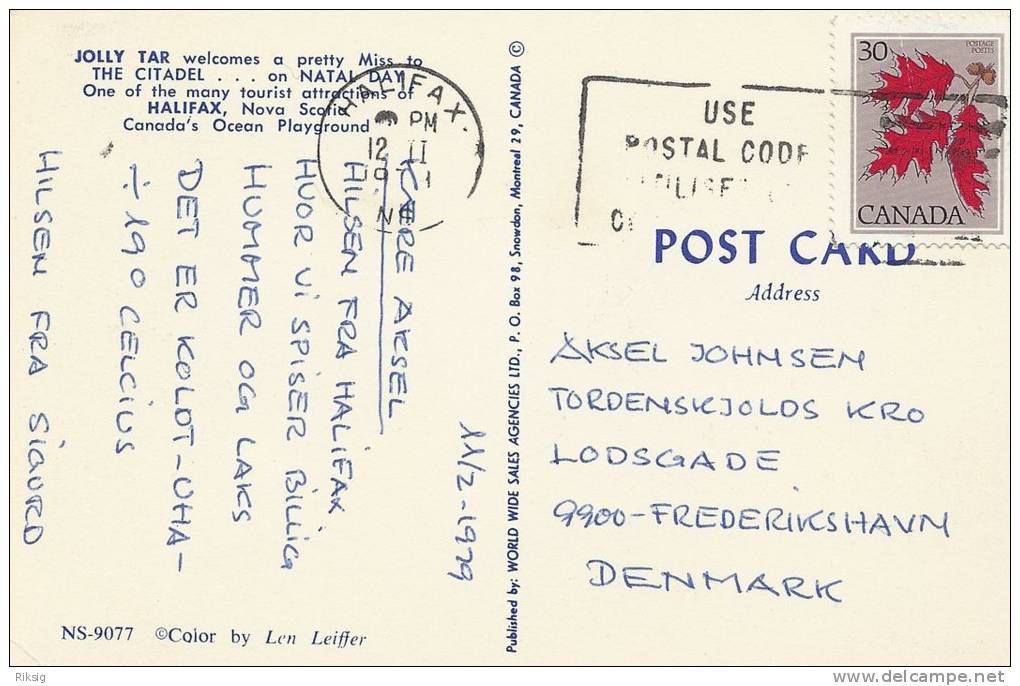 JOLLY TAR welcomes a pretty Miss to
THE CITADEL . . . on NATAL DAY
One of the many tourist attractions of
HALIFAX, Nova Scotia
Canada's Ocean Playground
11/2-1979
KÆRE AKSEL
HILSEN FRA HALIFAX
HVOR VI SPISER BILLIG
HUMMER OG LAKS
DET ER KOLDT-UHA-
÷ 190 CELCIUS
HILSEN FRA SIGURD
NS-9077 ©Color by Len Leiffer
Published by: WORLD WIDE SALES AGENCIES LTD., P. O. Box 98, Snowdon, Montreal 29, CANADA ©
HALIFAX.
PM
12 II
USE
POSTAL CODE
30
POSTAGE
POSTES
CANADA
POST CARD
Address
AKSEL JOHNSEN
TORDENSKJOLDS KRO
LODSGADE
9900-FREDERIKSHAVN
DENMARK
Riksig
delcampe.net